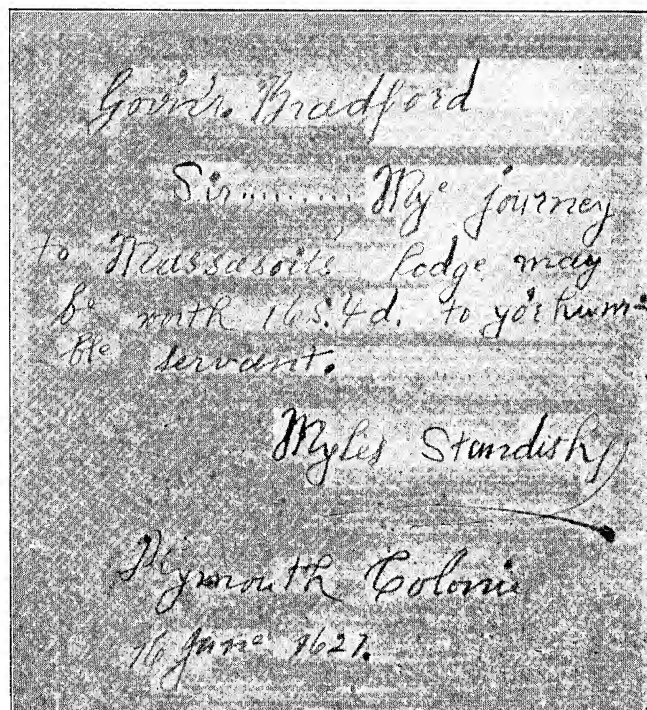 Gov'n'r. Bradford
Sir......... Mye journey
to Massasoits lodge may
be worth 16s.4d. to yor hum-
ble servant.
Myles Standish
Plymouth Colonie
16 June 1627.